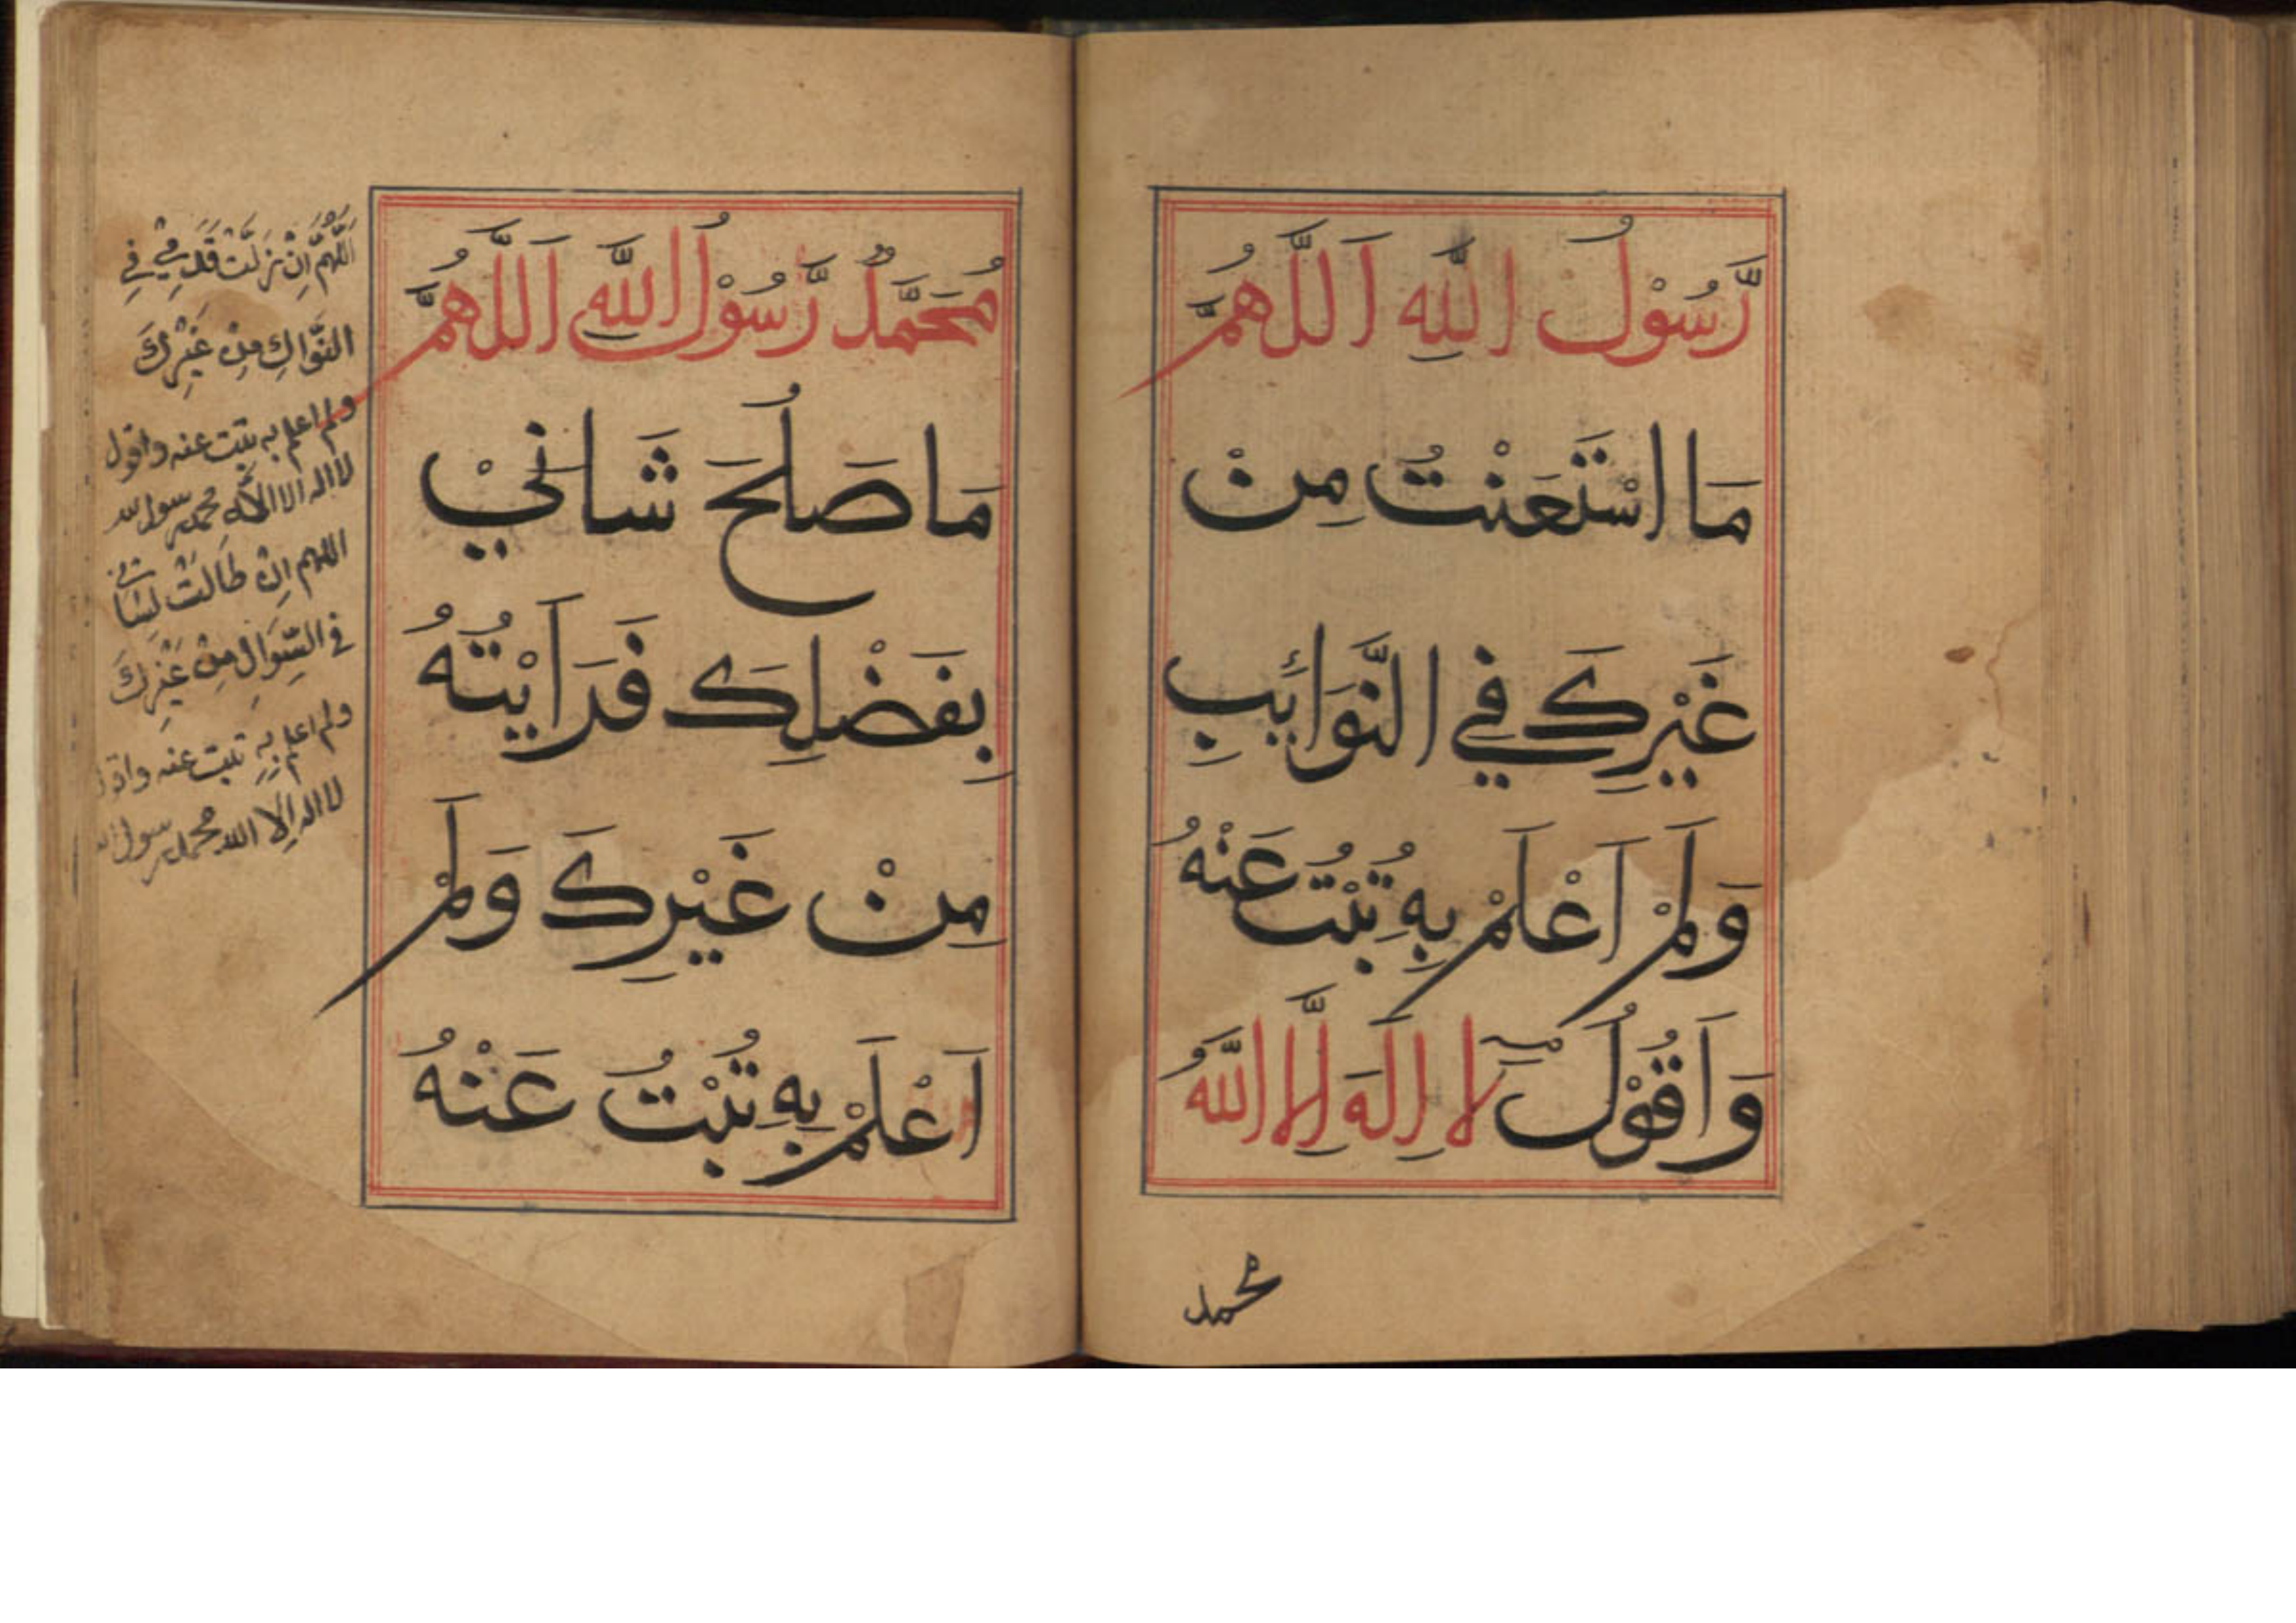 رَّسُوْلُ اللّٰهِ اَللّٰهُمَّ
مَا اسْتَعَنْتُ مِنْ
غَيْرِكَ فِي النَّوَائِبِ
وَلَمْ اَعْلَمْ بِهٖ تُبْتُ عَنْهُ
وَاَقُوْلُ لا اِلٰهَ اِلَّا اللّٰهُ
محمد
مُحَمَّدٌ رَّسُوْلُ اللّٰهِ اَللّٰهُمَّ
مَا صَلُحَ شَانِيْ
بِفَضْلِكَ فَرَاَيْتُهُ
مِنْ غَيْرِكَ وَلَمْ
اَعْلَمْ بِهٖ تُبْتُ عَنْهُ
اَللّٰهُمَّ اِنْ نزلَتْ قَدَمِيْ فِي
النَّوَاكِ مِنْ غَيْرِكَ
ولم اعلم به تبت عنه واقول
لا اله الا الله محمد رسول الله
اللهم اِنْ طَالَتْ لِسَانِي
فى السِّوَالِ مِنْ غَيْرِكَ
ولم اعلم بِهِ تبت عنه
لا اله اِلا الله محمد رسول الله